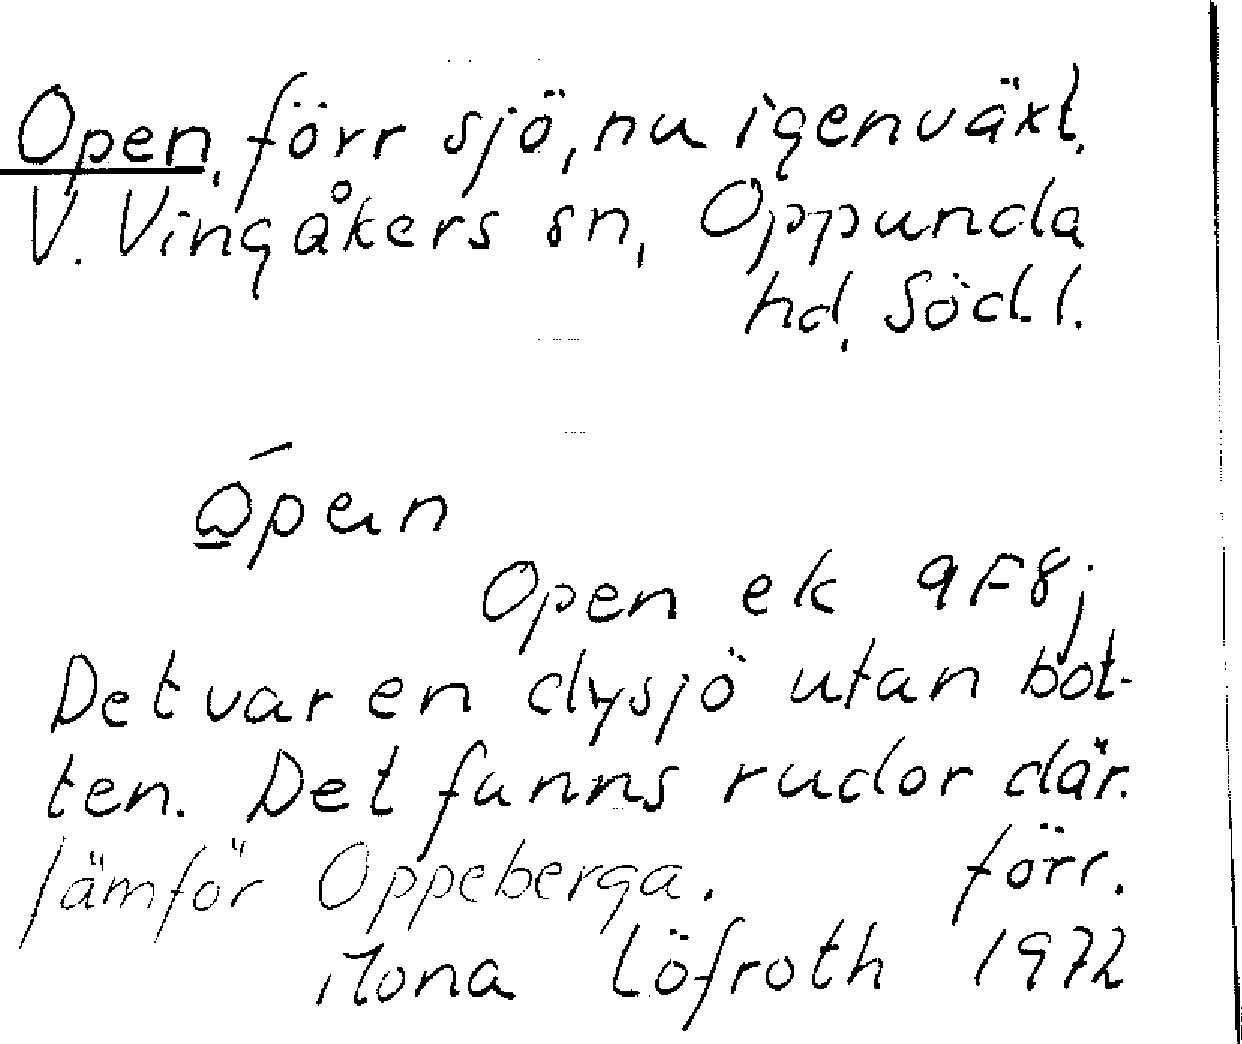 Open, förr sjö, nu igenväxt.
V. Vingåkers sn, Oppunda
hd, Södl.
Open ek 9F8j
Det var en dysjö utan bot-
ten. Det fanns rudor där.
förr.
Jämför Oppeberga.
Mona Löfroth 1972